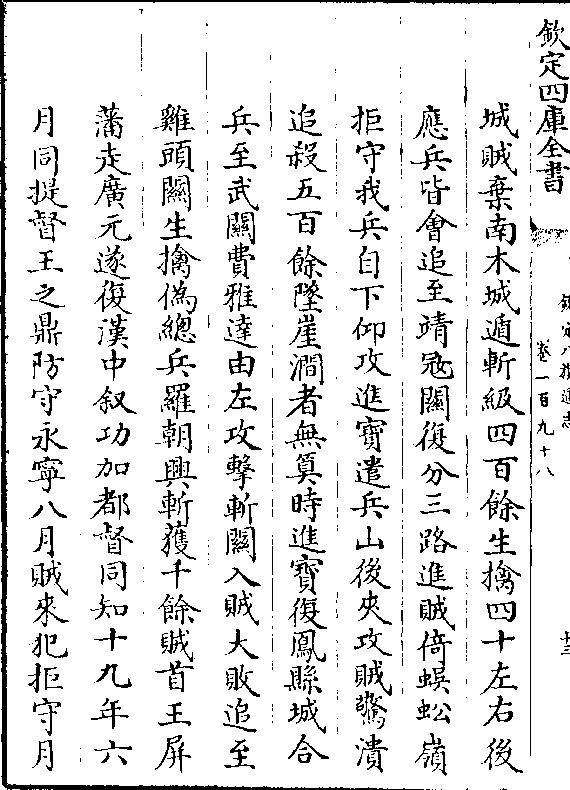 欽定四庫全書
欽定八旗通志
卷一百九十八
十三
城賊棄南木城遁斬級四百餘生擒四十左右後
應兵皆會追至靖宼關復分三路進賊倚蜈蚣嶺
拒守我兵自下仰攻進寶遣兵山後夾攻賊驚潰
追殺五百餘墜崖澗者無算時進寶復鳳縣城合
兵至武關費雅達由左攻擊斬關入賊大敗追至
雞頭關生擒偽總兵羅朝興斬獲千餘賊首王屏
藩走廣元遂復漢中叙功加都督同知十九年六
月同提督王之鼎防守永寧八月賊來犯拒守月